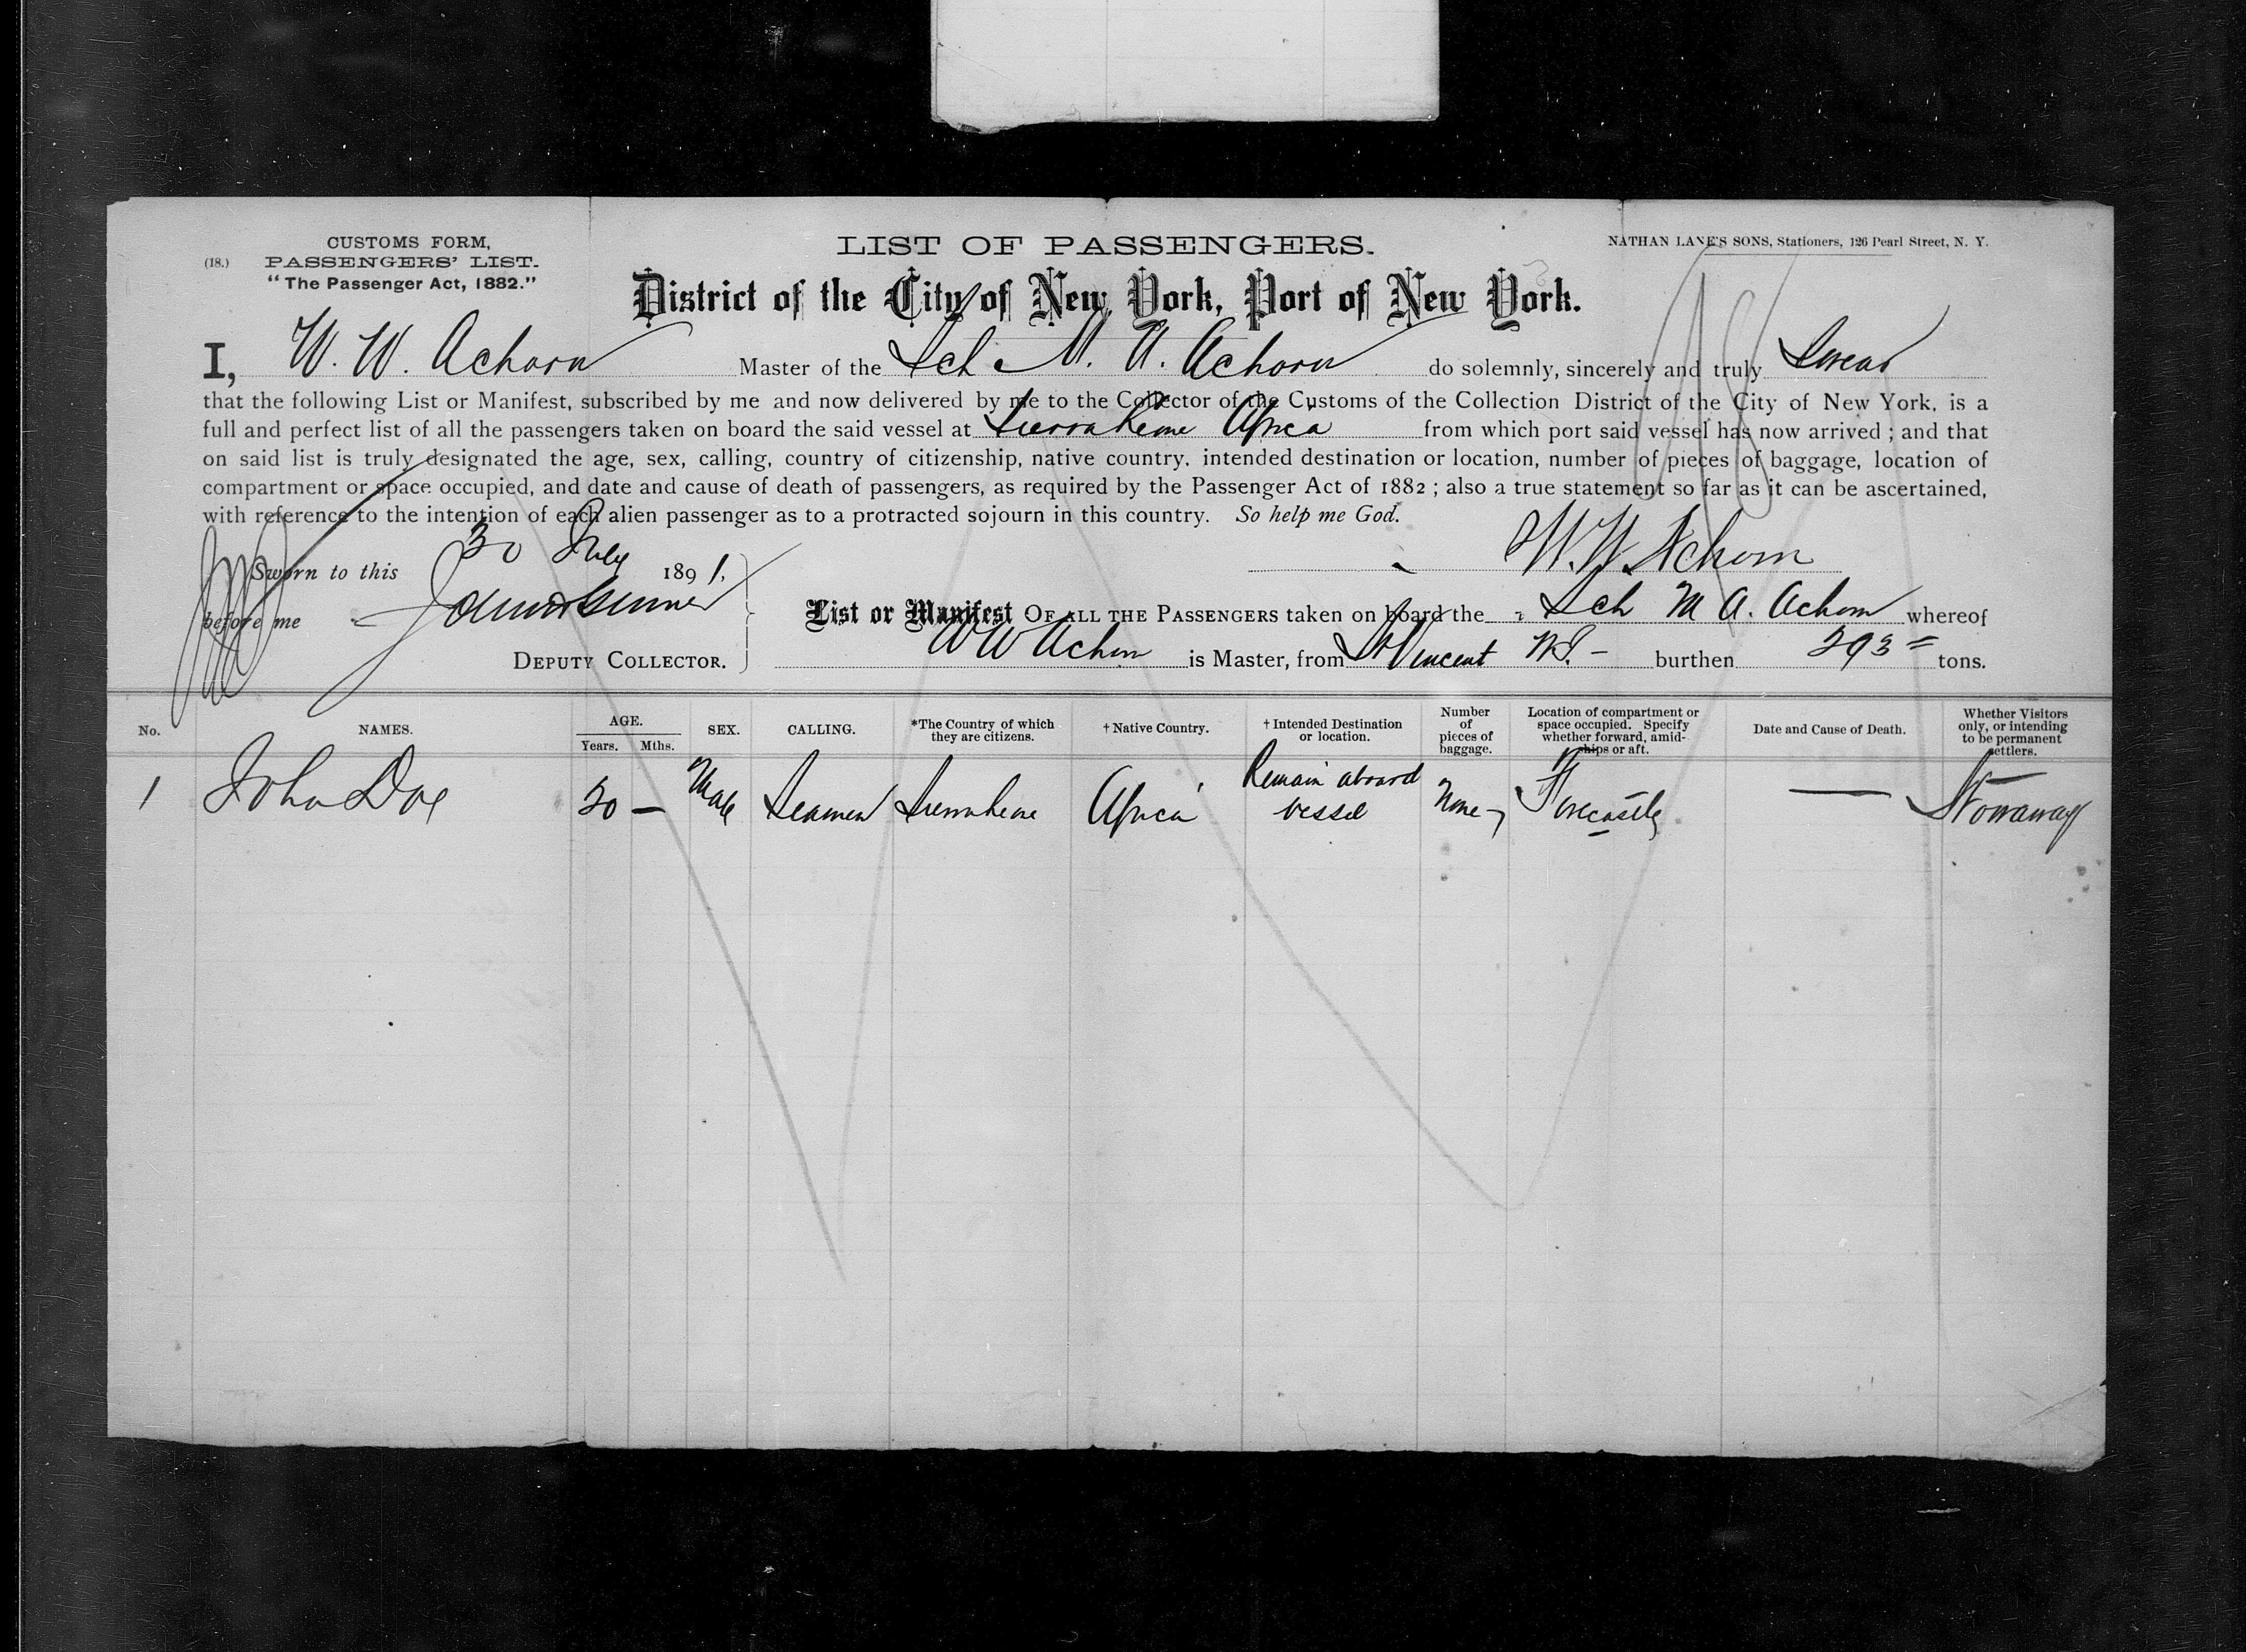 CUSTOMS FORM,
(18.) PASSENGERS' LIST.
"The Passenger Act, 1882."
LIST OF PASSENGERS.
NATHAN LANE'S SONS, Stationers, 126 Pearl Street, N. Y.
District of the City of New York, Port of New York.
I, W. W. Achorn Master of the Sch M. A. Achorn do solemnly, sincerely and truly Swear
that the following List or Manifest, subscribed by me and now delivered by me to the Collector of the Customs of the Collection District of the City of New York, is a
full and perfect list of all the passengers taken on board the said vessel at Sierra Leone Africa from which port said vessel has now arrived ; and that
on said list is truly designated the age, sex, calling, country of citizenship, native country, intended destination or location, number of pieces of baggage, location of
compartment or space occupied, and date and cause of death of passengers, as required by the Passenger Act of 1882 ; also a true statement so far as it can be ascertained,
with reference to the intention of each alien passenger as to a protracted sojourn in this country. So help me God.
W. W. Achorn
Sworn to this 30 July 1891.
before me
DEPUTY COLLECTOR.
List or Manifest OF ALL THE PASSENGERS taken on board the Sch M A. Achorn whereof
W W Achorn is Master, from St Vincent burthen 293 tons.
No. NAMES. AGE. Years. Mths. SEX. CALLING. *The Country of which they are citizens. † Native Country. † Intended Destination or location. Number of pieces of baggage. Location of compartment or space occupied. Specify whether forward, amidships or aft. Date and Cause of Death. Whether Visitors only, or intending to be permanent settlers.
1 John Doe 20 — Male Seaman Sierra Leone Africa Remain aboard vessel None Forecastle — Stowaway